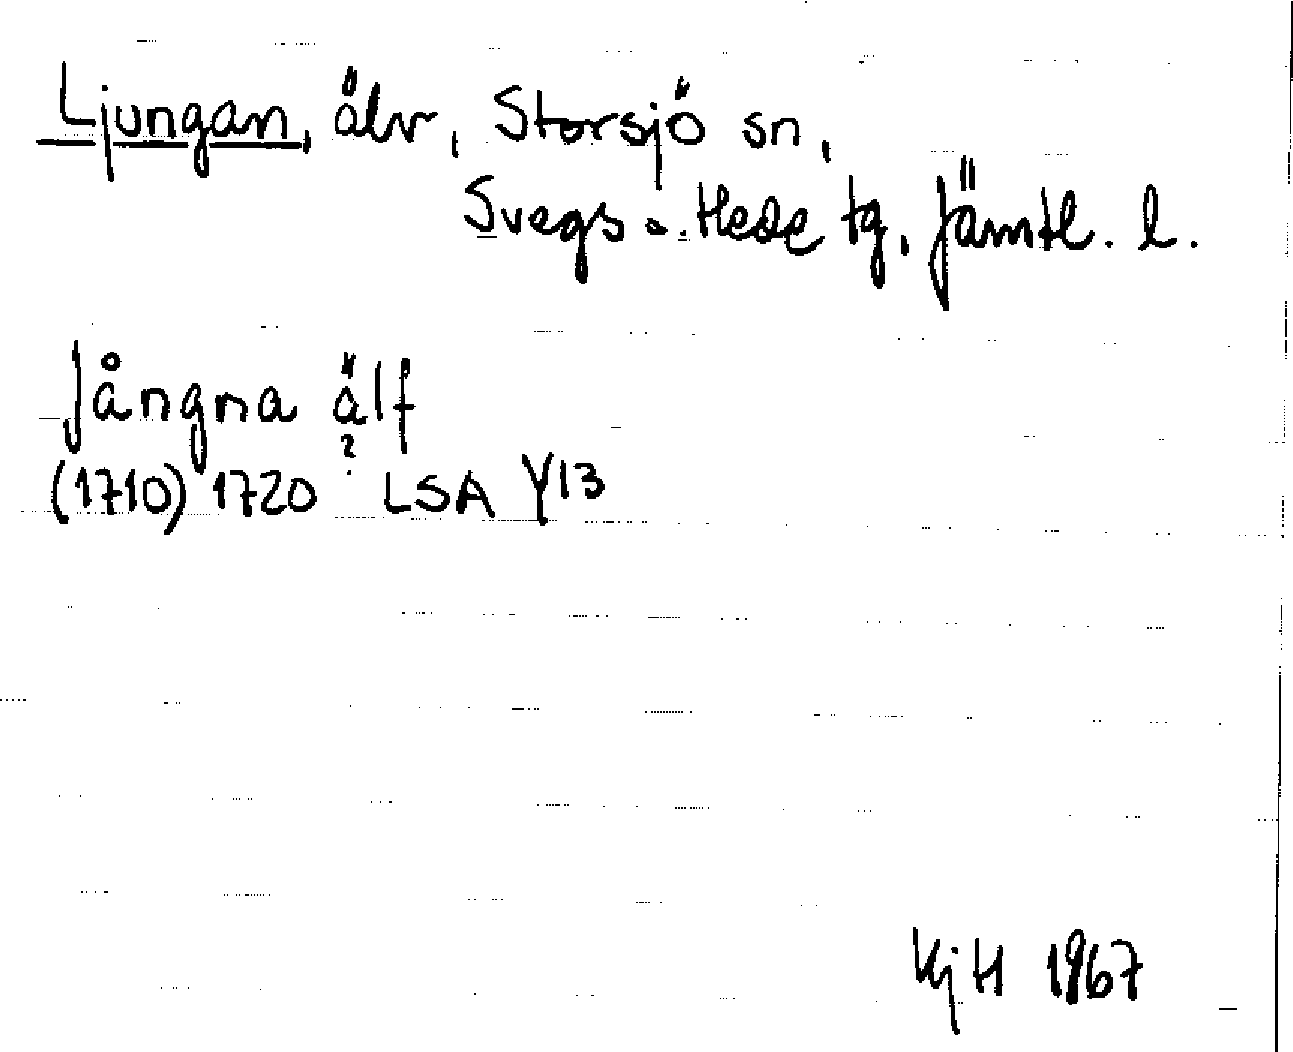 Ljungan, älv, Storsjö sn,
Svegs o. Hede tg, Jämtl. l.
Jångna älf
?
(1710) 1720 LSA Y13
KjH 1967